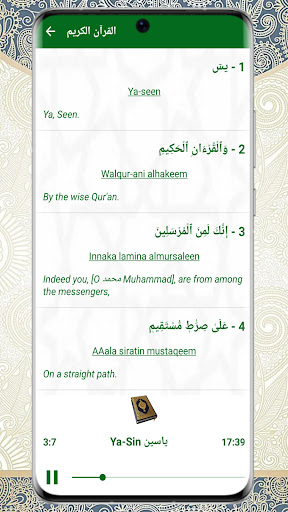 القرآن الكريم
1 - يسٓ
Ya-seen
Ya, Seen.
2 - وَٱلْقُرْءَانِ ٱلْحَكِيمِ
Walqur-ani alhakeem
By the wise Qur'an.
3 - إِنَّكَ لَمِنَ ٱلْمُرْسَلِينَ
Innaka lamina almursaleen
Indeed you, [O محمد Muhammad], are from among
the messengers,
4 - عَلَىٰ صِرَٰطٍ مُّسْتَقِيمٍ
AAala siratin mustaqeem
On a straight path.
3:7 Ya-Sin ياسين 17:39